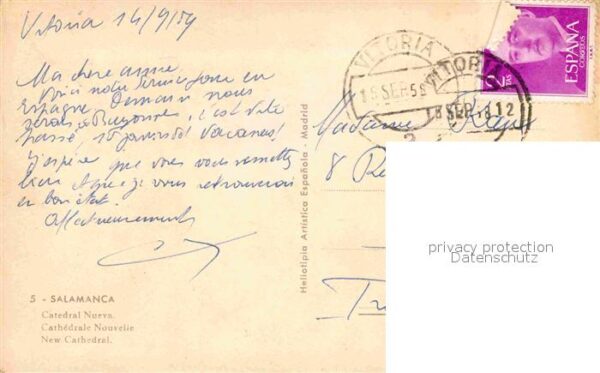 Vitoria 14/9/59
Ma chere amie
Voici notre dernier jour en
Espagne Demain nous
serons à Bayonne, c'est vite
passé, 15 jours de vacances!
J'espère que vous vous remettez
bien et que je vous retrouverai
en bon état.
Affectueusement
5 - SALAMANCA
Catedral Nueva.
Cathédrale Nouvelle
New Cathedral.
Heliotipia Artística Española - Madrid
VITORIA
15 SEP 59
VITORIA
16 SEP 12
2 PTAS
ESPAÑA
CORREOS
Madame
8 R
privacy protection
Datenschutz